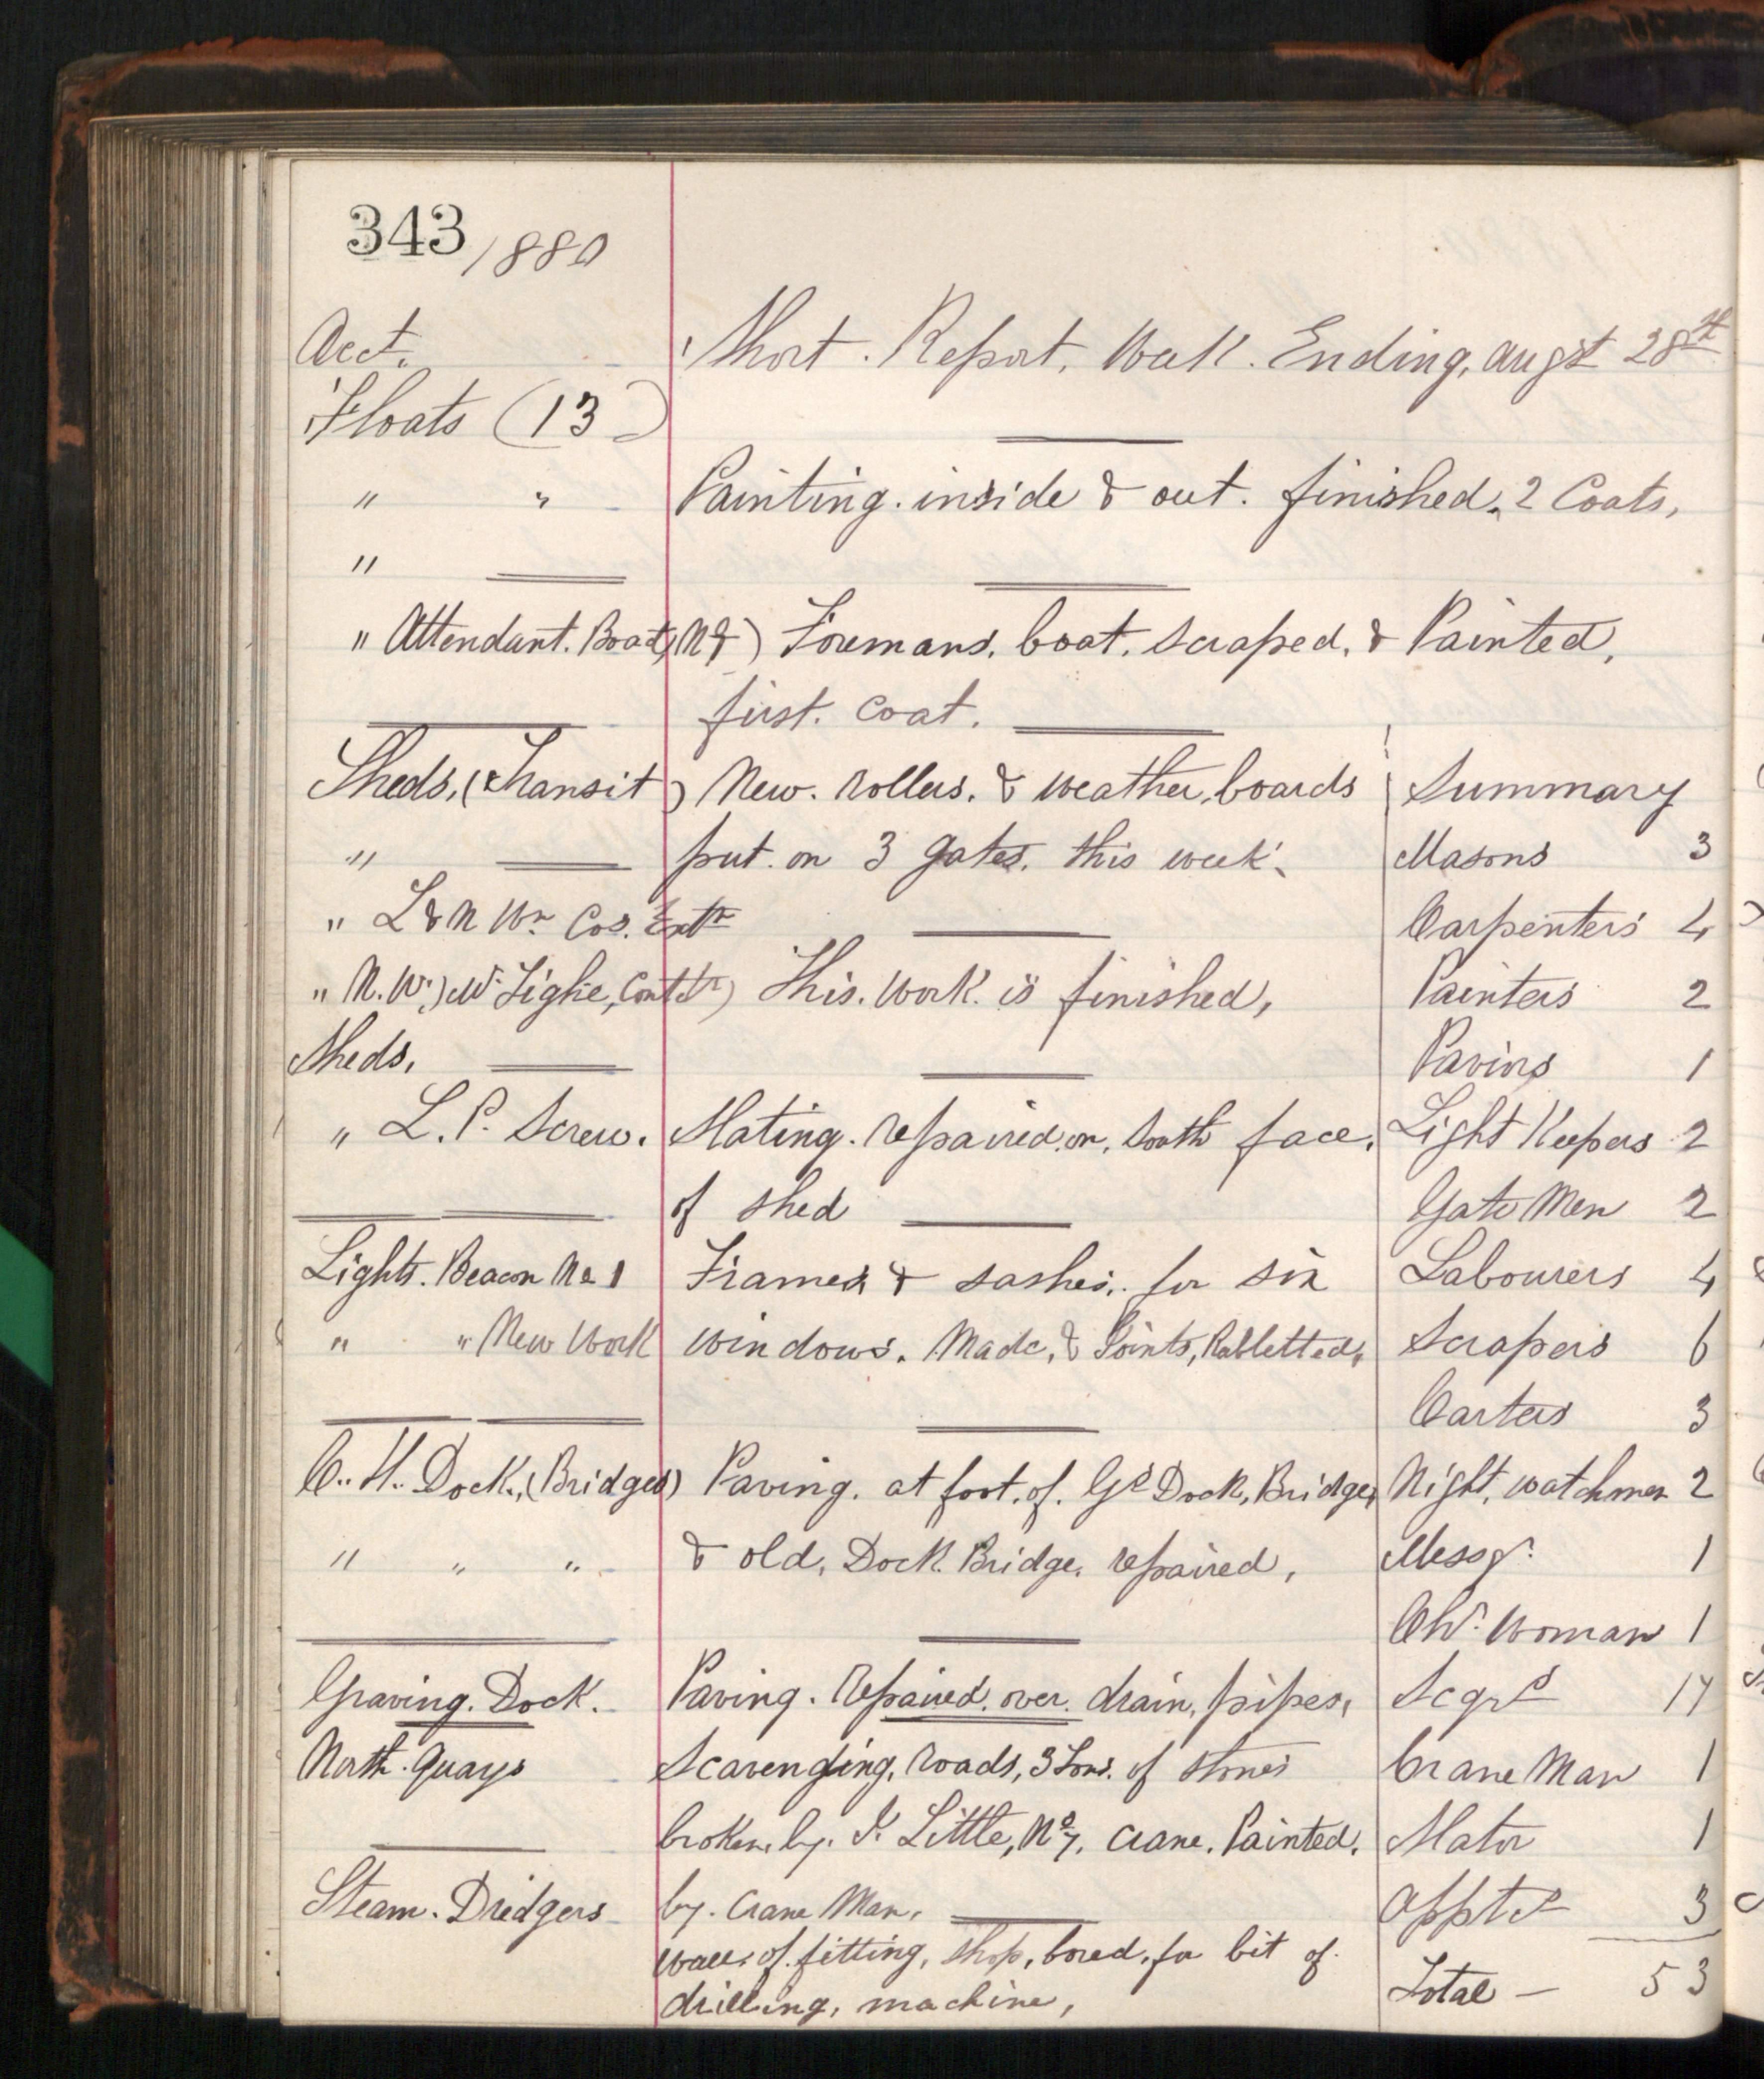 343 1880
Acct. Short. Report. Week. Ending, augst 28th
Floats (13)
" " Painting. inside & out. finished. 2 Coats,
"
" Attendant. Boats, ) Foremans. boat. scraped, & Painted,
first. coat.
Sheds, (Transit) New. rollers. & weather, boards Summary
" put. on 3 gates. this week. Masons 3
" L & N Wn Cos. Extn Carpenters 4
" N. W.) W. Tighe, Conttr) This. work. is finished, Painters 2
Sheds, Paviors 1
" L. P. Screw. Slating. repaired. on, South face, Light Keepers 2
of shed Gate Men 2
Lights. Beacon No 1 Frames & sashes, for six Labourers 4
" " New Work windows. Made, & Joints, Rabbetted, Scrapers 6
Carters 3
C. H. Dock, (Bridges) Paving. at foot. of. Gd Dock, Bridge, Night, watchmen 2
" " " & old, Dock. Bridge, repaired, Messgr. 1
Chr. Woman 1
Graving. Dock. Paving. repaired. over. drain, pipes, Scgrs 17
North. Quays Scavenging, roads, 3 Tons. of stones Crane Man 1
broken, by. J. Little, No 7, crane. Painted. Slator 1
Steam. Dredgers by. Crane Man, Apptcs 3
wall, of. fitting, shop, bored, for bit of.
drilling, machine, Total — 53